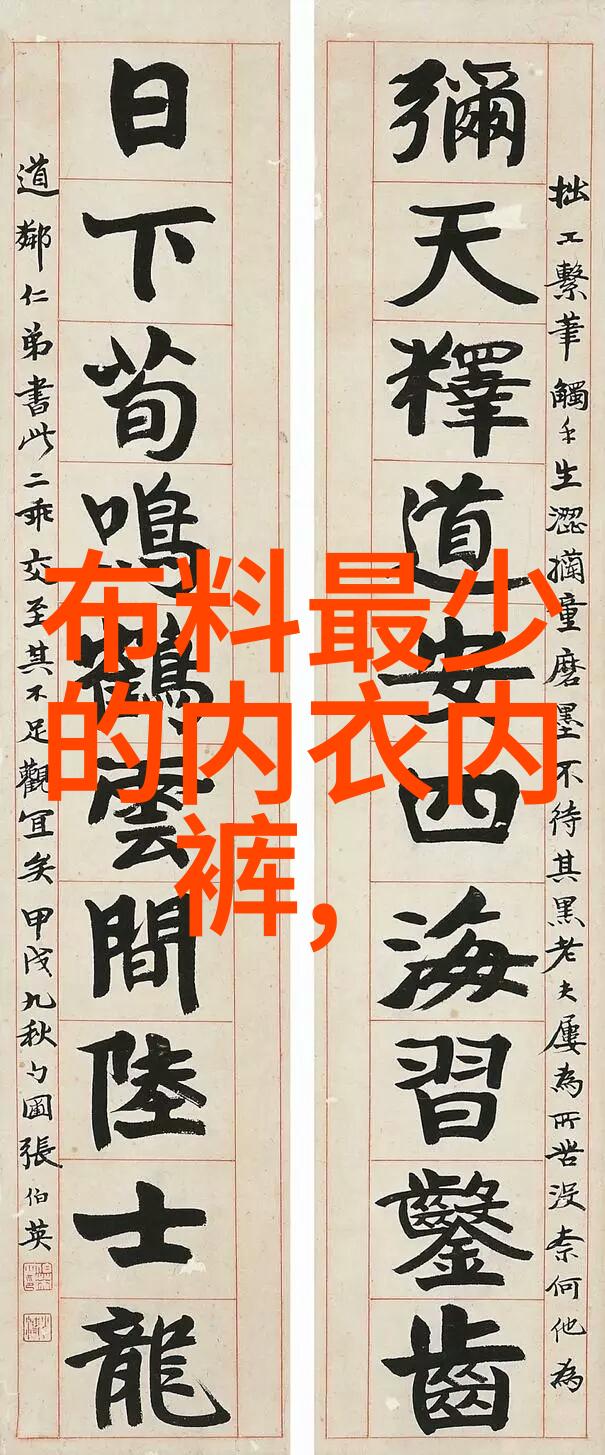 彌天釋道安四海習鑿齒
日下荀鳴鶴雲間陸士龍
拙工繫筆觸手生澀搁童磨墨不待其黑老夫屢為所苦沒柰何他為
道鄰仁弟書此二乖交至其不足觀宜矣甲戌九秋勺圃張伯英
布料最少
的内衣内
裤,